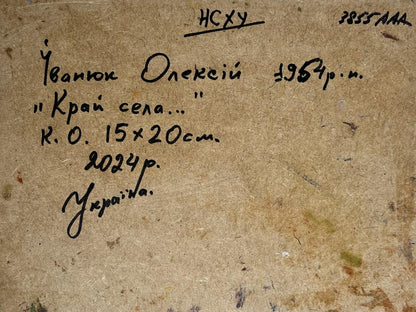 НСХУ 3855 ААА.
Іванюк Олексій 1954р.н.
„Край села..."
К. О. 15×20см.
2024р.
Україна.